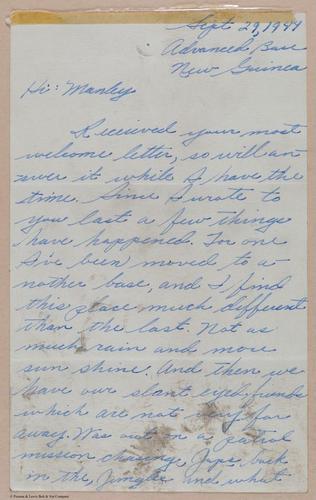 Sept 29, 1944
Advanced Base
New Guinea
Hi: Manley
Received your most
welcome letter, so will an-
swer it while I have the
time. Since I wrote to
you last a few things
have happened. For one
I've been moved to a-
nother base, and I find
this place much different
than the last. Not as
much rain and more
sun shine. And then we
have our slant eyed friends
which are not very far
away. Was out on a patrol
mission chasing Japs back
in the, Jungles and what